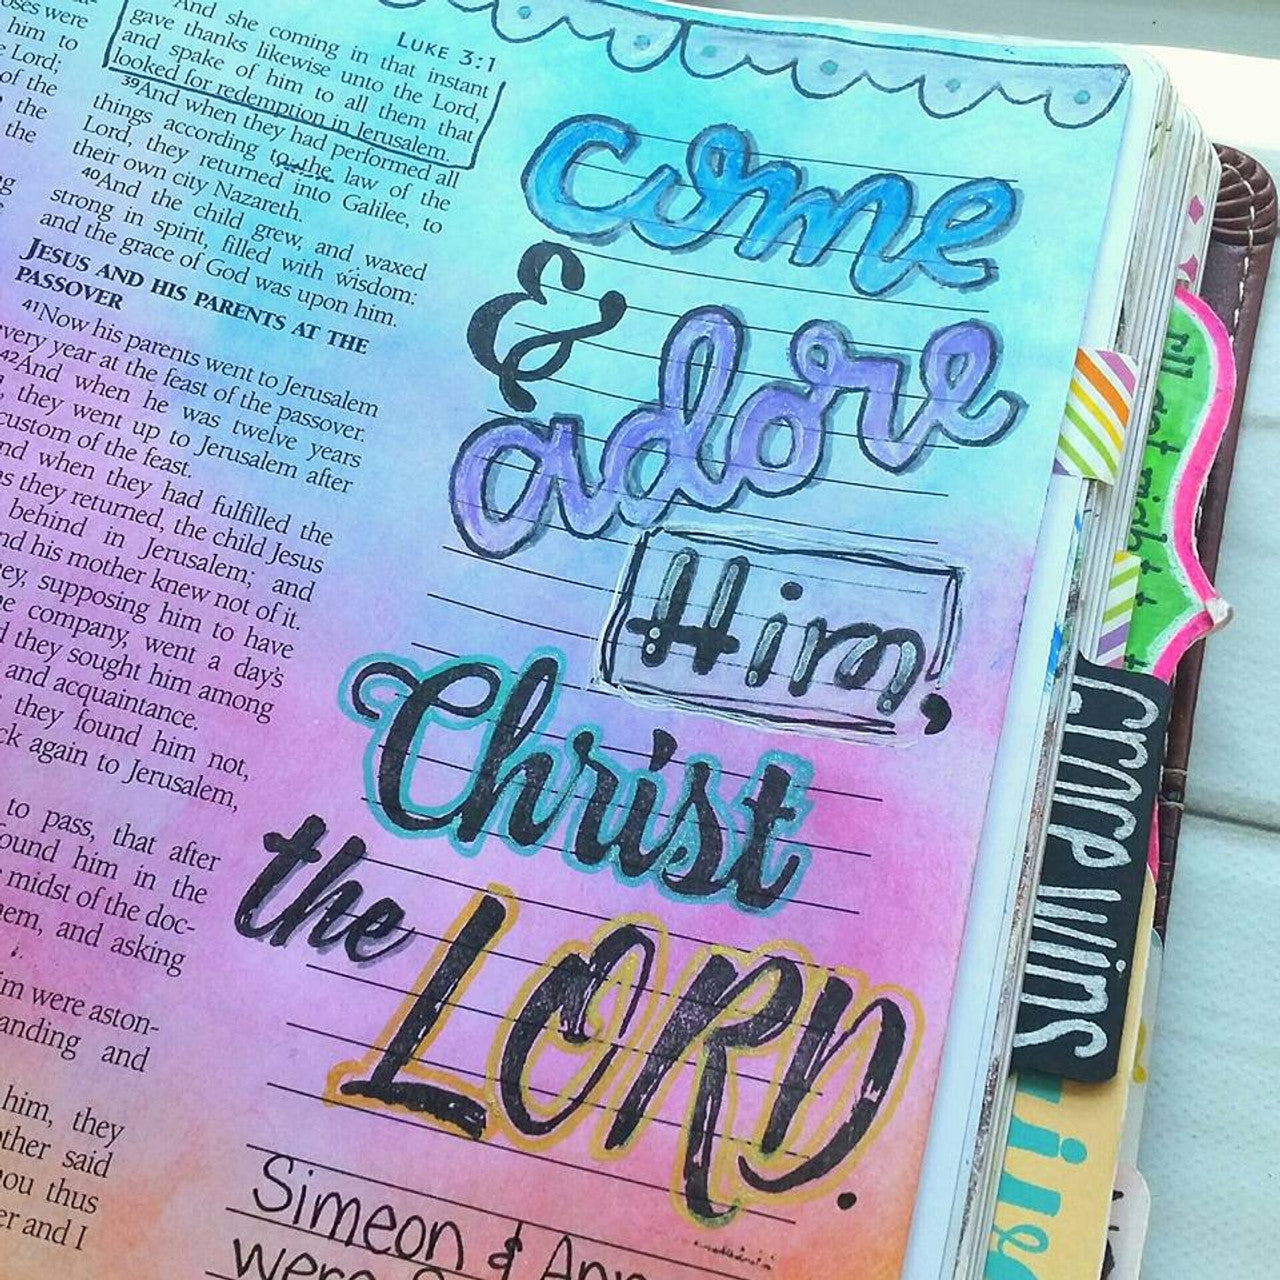 oses were
him to
e Lord;
of the
the
the
LUKE 3:1
And she coming in that instant
gave thanks likewise unto the Lord,
and spake of him to all them that
looked for redemption in Jerusalem.
39And when they had performed all
things according to the law of the
Lord, they returned into Galilee, to
their own city Nazareth.
40And the child grew, and waxed
strong in spirit, filled with wisdom:
and the grace of God was upon him.
JESUS AND HIS PARENTS AT THE
PASSOVER
41Now his parents went to Jerusalem
very year at the feast of the passover.
42And when he was twelve years
, they went up to Jerusalem after
custom of the feast.
nd when they had fulfilled the
as they returned, the child Jesus
behind in Jerusalem; and
nd his mother knew not of it.
ey, supposing him to have
e company, went a day's
d they sought him among
and acquaintance.
they found him not,
ck again to Jerusalem,
to pass, that after
ound him in the
midst of the doc-
em, and asking
im were aston-
anding and
him, they
other said
ou thus
er and I
come
& adore
Him,
Christ
the LORD.
Simeon & Ann
were
crop wins